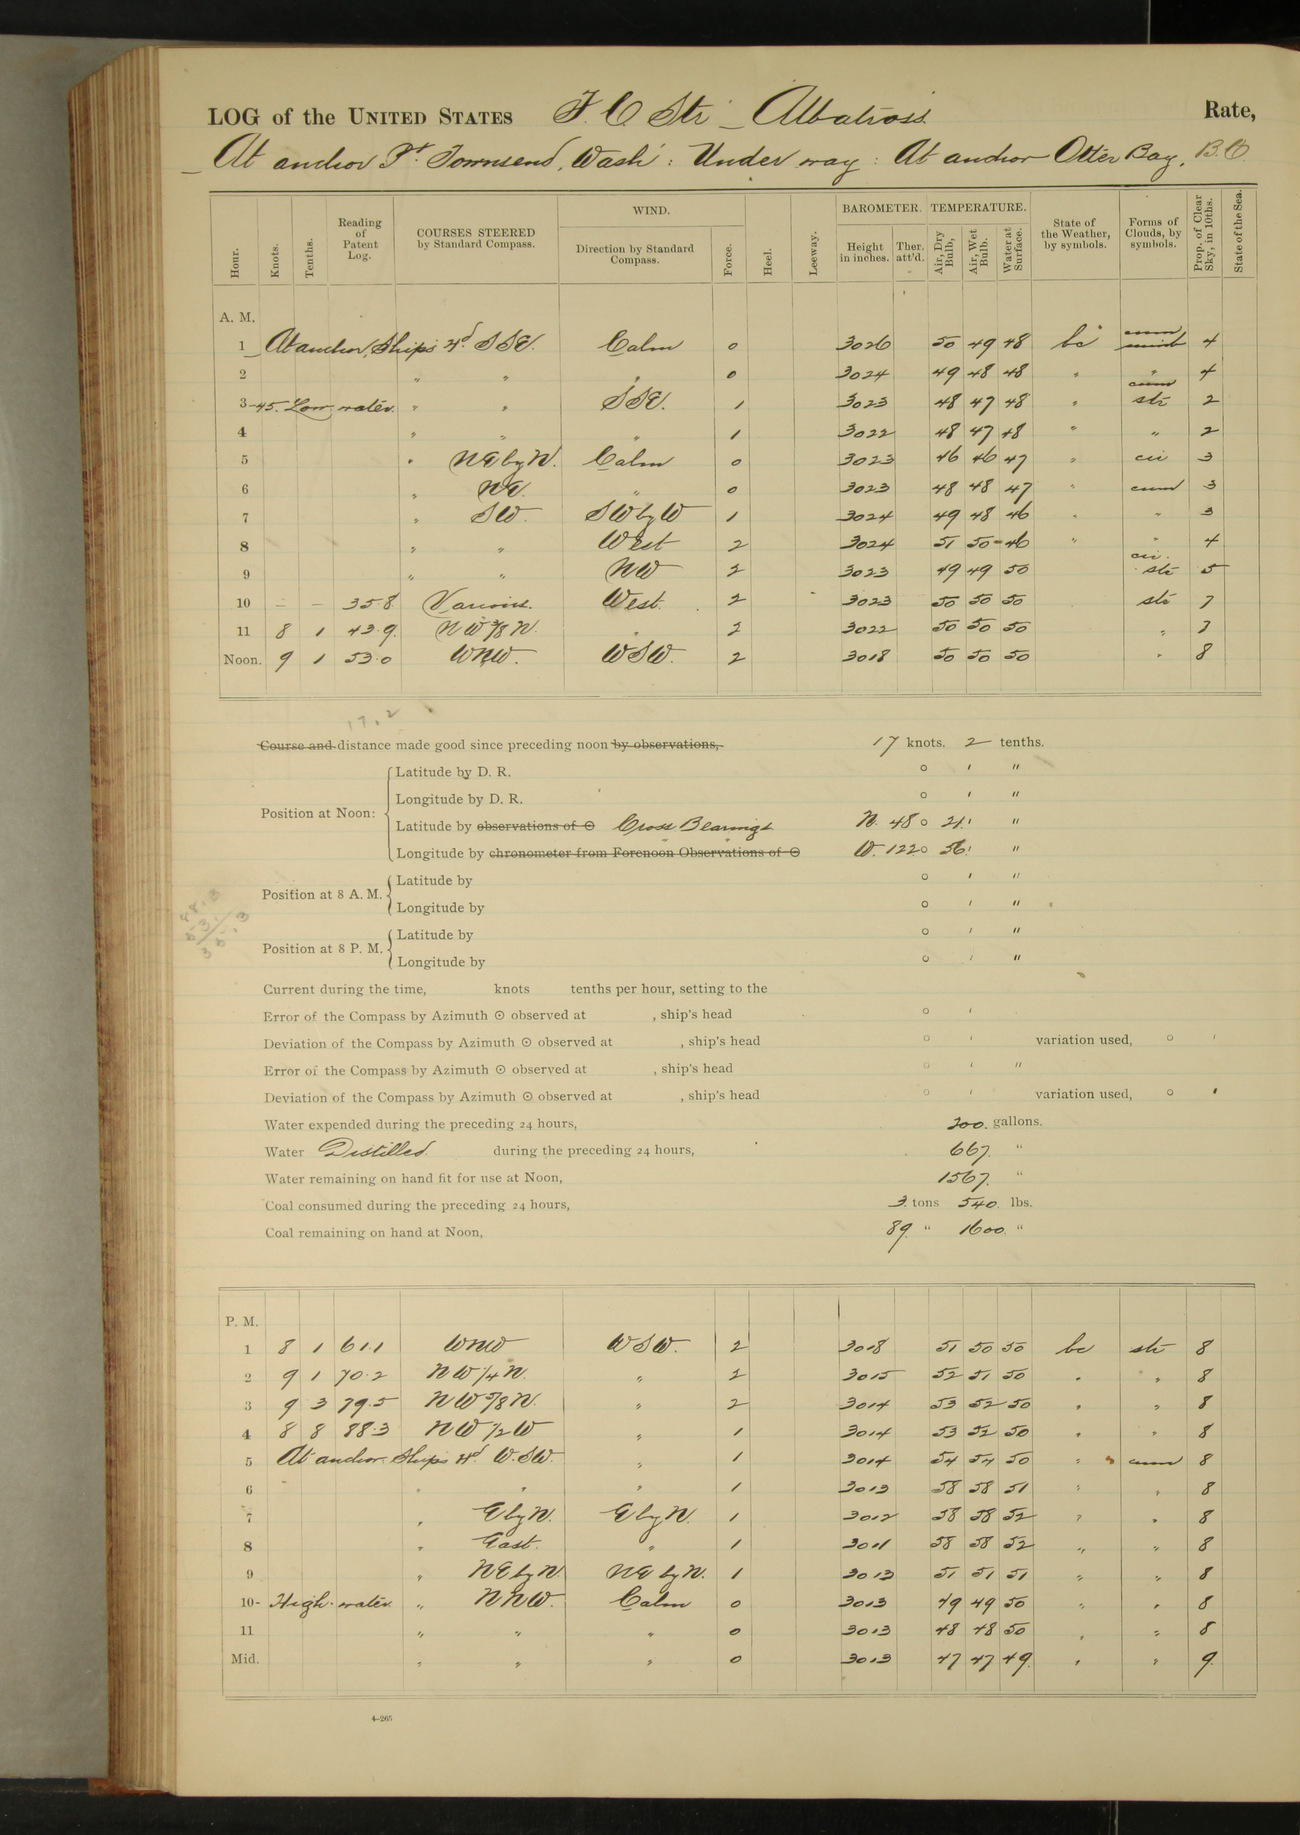 LOG of the UNITED STATES F. C. Str. Albatross Rate,
At anchor Pt. Townsend, Wash: Under way: At anchor Otter Bay, B.C.
Hour. Knots. Tenths. Reading of Patent Log. COURSES STEERED by Standard Compass. WIND. Direction by Standard Compass. Force. Heel. Leeway. BAROMETER. Height in inches. Ther. att'd. TEMPERATURE. Air, Dry Bulb, Air, Wet Bulb. Water at Surface. State of the Weather, by symbols. Forms of Clouds, by symbols. Prop. of Clear Sky, in 10ths. State of the Sea.
A. M.
1 At anchor, Ship's Hd. SSE. Calm 0 3026 50 49 48 bc cum 4
2 " " " 0 3024 49 48 48 " " 4
3-45. Low water. " " SSE. 1 3023 48 47 48 " cum str 2
4 " " " 1 3022 48 47 48 " " 2
5 " NE by N. Calm 0 3023 46 46 47 " cir 3
6 " NE. " 0 3023 48 48 47 " cum 3
7 " SW. SW by W 1 3024 49 48 46 " " 3
8 " " West 2 3024 51 50 46 " " 4
9 " " NW 2 3023 49 49 50 cir. str 5
10 – – 35.8 Various. West. 2 3023 50 50 50 str 7
11 8 1 43.9. NW 3/8 N. " 2 3022 50 50 50 " 7
Noon. 9 1 53.0 WNW. WSW. 2 3018 50 50 50 " 8
17.2
Course and distance made good since preceding noon by observations, 17 knots. 2 tenths.
Position at Noon:
Latitude by D. R. ° ' "
Longitude by D. R. ° ' "
Latitude by observations of ☉ Cross Bearings N. 48 ° 21 ' "
Longitude by chronometer from Forenoon Observations of ☉ W. 122 ° 56 ' "
Position at 8 A. M.
Latitude by ° ' "
Longitude by ° ' "
88.3
53.
35.3
Position at 8 P. M.
Latitude by ° ' "
Longitude by ° ' "
Current during the time, knots tenths per hour, setting to the
Error of the Compass by Azimuth ☉ observed at , ship's head ° '
Deviation of the Compass by Azimuth ☉ observed at , ship's head ° ' variation used, ° '
Error of the Compass by Azimuth ☉ observed at , ship's head ° ' "
Deviation of the Compass by Azimuth ☉ observed at , ship's head ° ' variation used, ° '
Water expended during the preceding 24 hours, 200. gallons.
Water Distilled during the preceding 24 hours, 667. "
Water remaining on hand fit for use at Noon, 1567. "
Coal consumed during the preceding 24 hours, 3. tons 540. lbs.
Coal remaining on hand at Noon, 89. " 1600. "
P. M.
1 8 1 61.1 WNW WSW. 2 3018 51 50 50 bc str 8
2 9 1 70.2 NW 1/4 N. " 2 3015 52 51 50 " " 8
3 9 3 79.5 NW 5/8 N. " 2 3014 53 52 50 " " 8
4 8 8 88.3 NW 1/2 W " 1 3014 53 52 50 " " 8
5 At anchor. Ships Hd. W.SW. " 1 3014 54 54 50 " cum 8
6 " " " 1 3013 58 58 51 " " 8
7 " E by N. E by N. 1 3012 58 58 52 " " 8
8 " East. " 1 3011 58 58 52 " " 8
9 " NE by N NE by N. 1 3013 51 51 51 " " 8
10- High water. " NNW. Calm 0 3013 49 49 50 " " 8
11 " " " 0 3013 48 48 50 " " 8
Mid. " " " 0 3013 47 47 49. " " 9
4–265